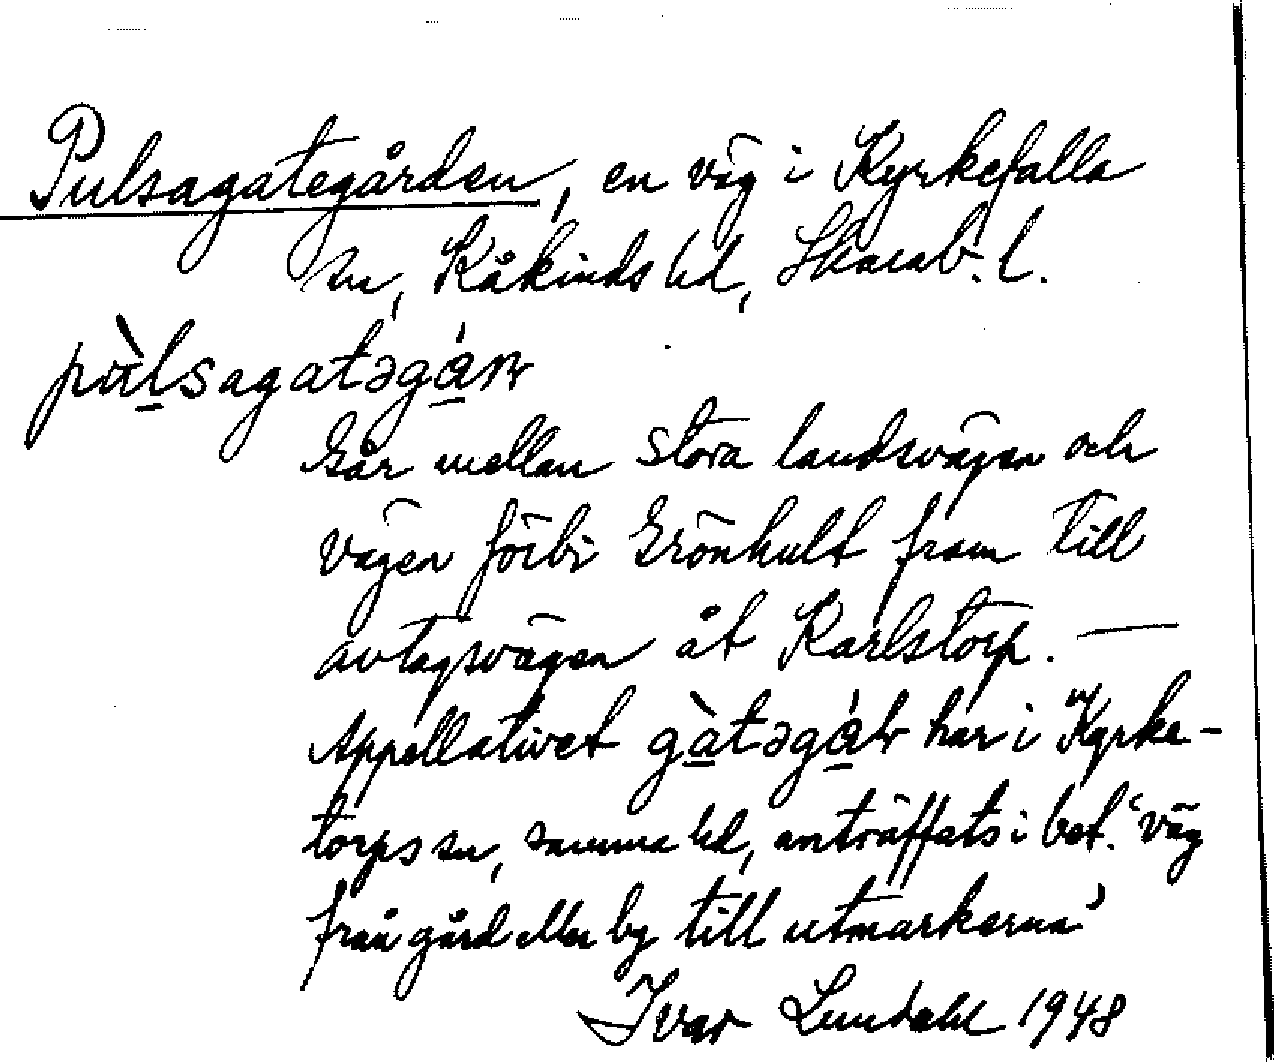 Pulsagategården, en väg i Kyrkefalla
sn, Kåkinds hd, Skarab. l.
pù̱lsagatəgá̱ɳ
Går mellan stora landsvägen och
vägen förbi Grönhult fram till
avtagsvägen åt Karlstorp. —
Appellativet gà̱təgá̱ɽ har i Kyrke-
torps sn, samma hd, anträffats i bet. 'väg
från gård eller by till utmarkerna'
Ivar Lundahl 1948